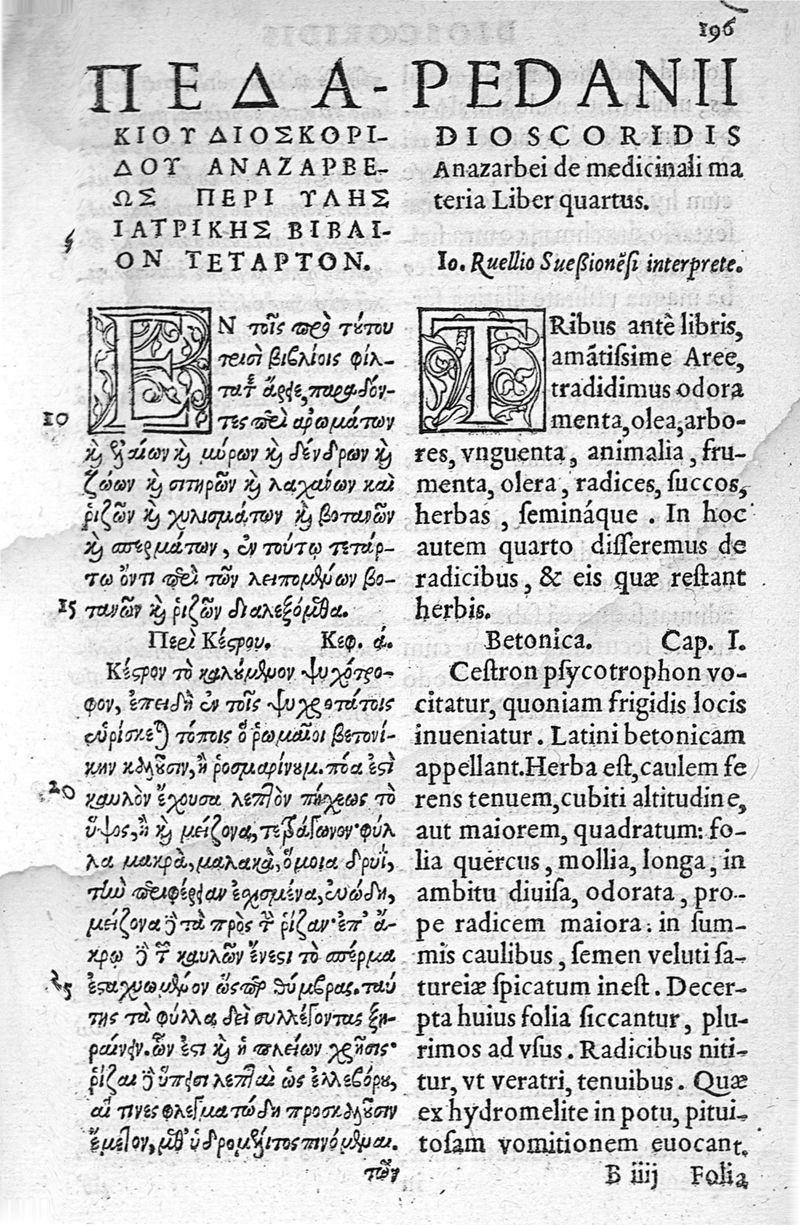 196
ΠΕΔΑ-
ΚΙΟΥ ΔΙΟΣΚΟΡΙ-
ΔΟΥ ΑΝΑΖΑΡΒΕ-
ΩΣ ΠΕΡΙ ΥΛΗΣ
ΙΑΤΡΙΚΗΣ ΒΙΒΛΙ-
ΟΝ ΤΕΤΑΡΤΟΝ.
ΕΝ τοῖς πρὸ τύτου
τρισὶ βιβλίοις φίλ-
τατε ἄρειε, παραδόν-
10
τες περὶ ἀρωμάτων
καὶ ἐλαίων καὶ μύρων καὶ δένδρων καὶ
ζώων καὶ σιτηρῶν καὶ λαχάνων καὶ
ῥιζῶν καὶ χυλισμάτων καὶ βοτανῶν
καὶ σπερμάτων, ἐν τούτῳ τετάρ-
τῳ ὄντι περὶ τῶν λειπομένων βο-
15
τανῶν καὶ ῥιζῶν διαλεξόμεθα.
Περὶ Κέστρου. Κεφ. ά.
Κέστρον τὸ καλούμενον ψυχότρο-
φον, ἐπειδὴ ἐν τοῖς ψυχροτάτοις
εὑρίσκεται τόποις ὃ ῥωμαῖοι βετονί-
κην καλοῦσιν, ἢ ῥοσμαρίνουμ. πόα ἐστὶ
20
καυλὸν ἔχουσα λεπτὸν πήχεως τὸ
ὕψος, ἢ καὶ μείζονα, τετράγωνον· φύλ
λα μακρὰ, μαλακὰ, ὅμοια δρυῒ,
τὴν περιφέρειαν ἐσχισμένα, εὐώδη,
μείζονα δὲ τὰ πρὸς τὴν ῥίζαν· ἐπ' ἄ-
κρῳ δὲ τῶν καυλῶν ἔνεστι τὸ σπέρμα
25
ἐσταχυωμένον ὥσπερ θύμβρας. ταύ
της τὰ φύλλα δεῖ συλλέξοντας ξη-
ραίνειν. ὧν ἐστι καὶ ἡ πλείων χρῆσις·
ῥίζαι δὲ ὕπεισι λεπταὶ ὡς ἐλλεβόρου,
αἵ τινες φλεγματώδη προσκαλοῦσιν
ἔμετον, μεθ' ὑδρομέλιτος πινόμεναι.
τῶν
PEDANII
DIOSCORIDIS
Anazarbei de medicinali ma
teria Liber quartus.
Io. Ruellio Sueßionẽsi interprete.
TRibus antè libris,
amãtissime Aree,
tradidimus odora
menta, olea, arbo-
res, vnguenta, animalia, fru-
menta, olera, radices, succos,
herbas, semináque. In hoc
autem quarto differemus de
radicibus, & eis quæ restant
herbis.
Betonica. Cap. I.
Cestron psycotrophon vo-
citatur, quoniam frigidis locis
inueniatur. Latini betonicam
appellant. Herba est, caulem fe
rens tenuem, cubiti altitudine,
aut maiorem, quadratum: fo-
lia quercus, mollia, longa, in
ambitu diuisa, odorata, pro-
pe radicem maiora: in sum-
mis caulibus, semen veluti sa-
tureiæ spicatum inest. Decer-
pta huius folia siccantur, plu-
rimos ad vsus. Radicibus niti-
tur, vt veratri, tenuibus. Quæ
ex hydromelite in potu, pitui-
tosam vomitionem euocant.
B iiij Folia